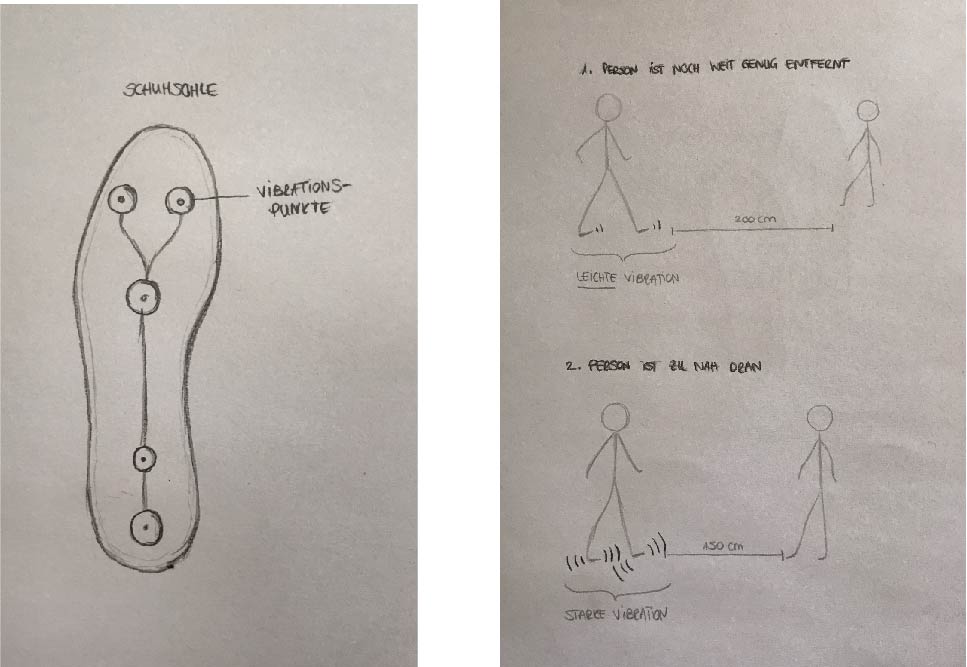 SCHUHSOHLE
VIBRATIONS-
PUNKTE
1. PERSON IST NOCH WEIT GENUG ENTFERNT
200 cm
LEICHTE VIBRATION
2. PERSON IST ZU NAH DRAN
150 cm
STARKE VIBRATION